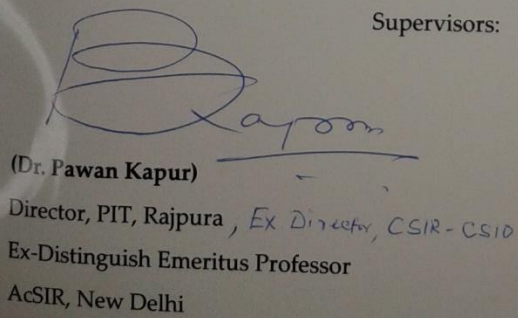 Supervisors:
(Dr. Pawan Kapur)
Director, PIT, Rajpura, Ex Director, CSIR-CSIO
Ex-Distinguish Emeritus Professor
AcSIR, New Delhi